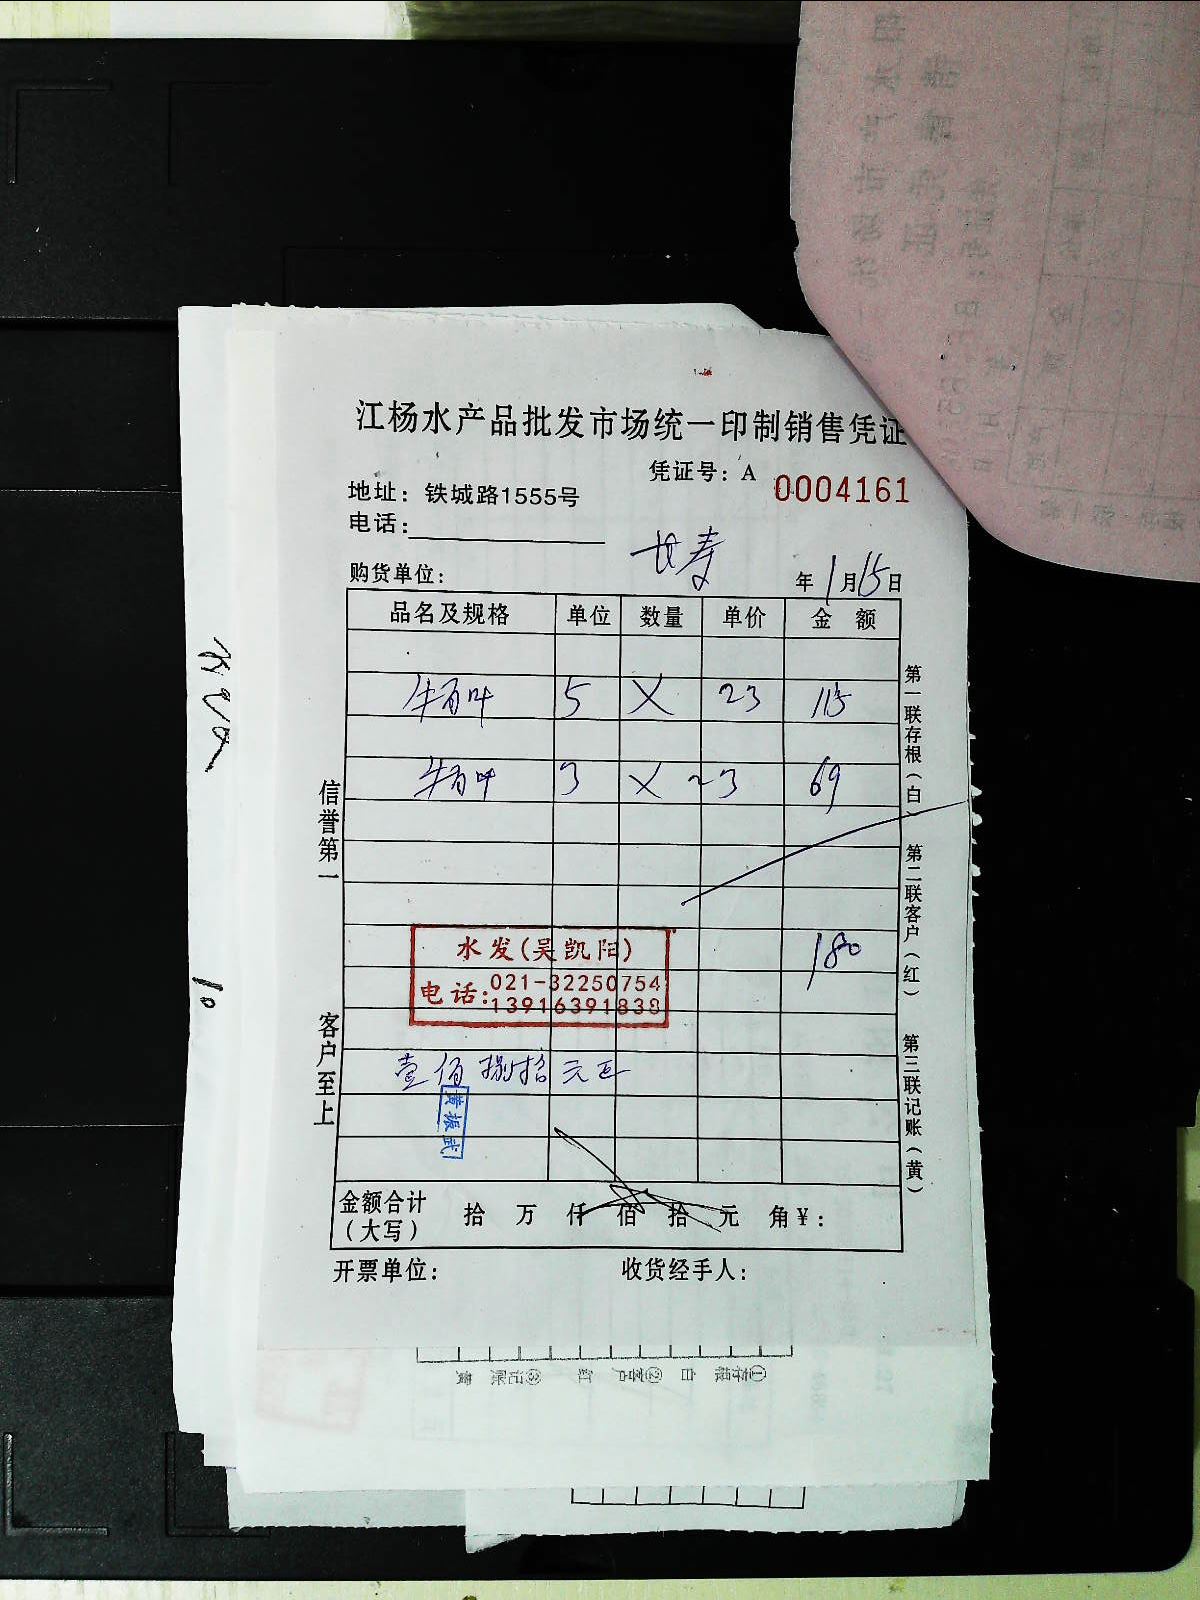 江杨水产品批发市场统一印制销售凭证
凭证号：A 0004161
地址：铁城路1555号
电话：
长寿
购货单位： 年 1 月 15 日
品名及规格 单位 数量 单价 金 额
牛百叶 5 X 23 115
牛百叶 3 X 23 69
180
水发(吴凯阳)
电话:021-32250754
13916391838
壹佰捌拾元正
黄振武
金额合计（大写） 拾 万 仟 佰 拾 元 角 ￥:
开票单位： 收货经手人：
信誉第一
客户至上
第一联存根（白）
第二联客户（红）
第三联记账（黄）
10
①存根 白 ②客户 红 ③记账 黄